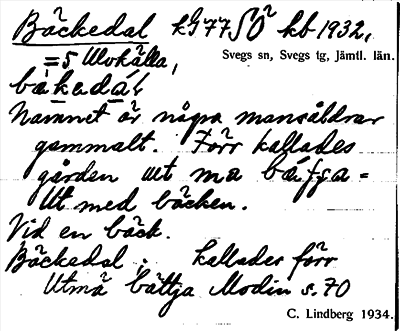 Bäckedal kG 77 SÖ kb 1932.
= 5 Ulvkälla,
Svegs sn, Svegs tg, Jämtl. län.
bàkedá'l
Namnet är några mansåldrar
gammalt. Förr kallades
gården ut ma
Ut med bäcken.
Vid en bäck.
Bäckedal; kallades förr
Utmä bättja Modin s. 70
C. Lindberg 1934.